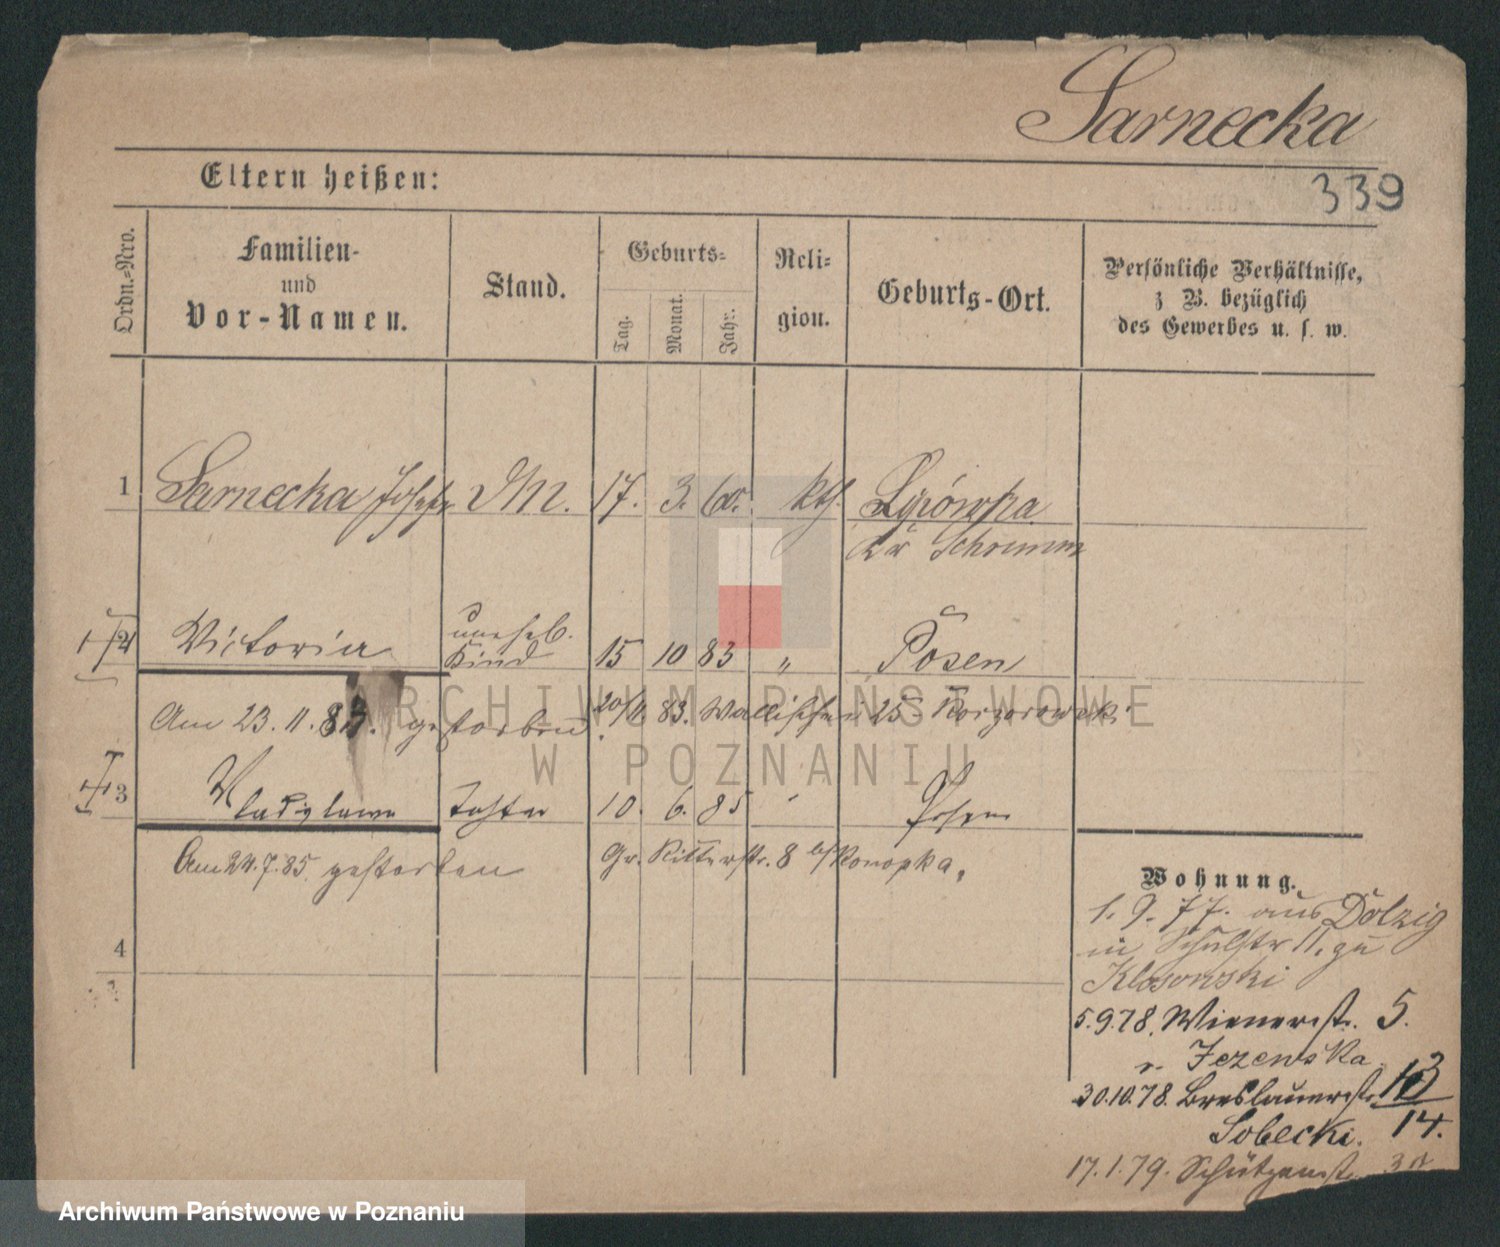 Sarnecka
339
Eltern heißen:
Ordn.-Nro.
Familien-
und
Vor-Namen.
Stand.
Geburts-
Tag.
Monat.
Jahr.
Reli-
gion.
Geburts-Ort.
Persönliche Verhältnisse,
z B. bezüglich
des Gewerbes u. s. w.
1 Sarnecka 17. 3. 60. kth.
Schrimm
2 Victoria unehel. Kind 15 10 83 " Posen
Am 23.11.83. gestorben 20/11. 83. Wallischei 25
3 Wladyslawa Tochter 10. 6. 85 Posen
Am 24.7.85. gestorben Gr. Ritterstr. 8 b/ Konopka.
4
Wohnung.
1.9.77. aus Dolzig
in Schulstr 11. zu
Klosowski
5.9.78. Wienerstr. 5.
Jezewska
30.10.78. Breslauerstr. 13
14.
Sobecki.
17.1.79. Schützenstr.
ARCHIWUM PAŃSTWOWE
W POZNANIU
Archiwum Państwowe w Poznaniu